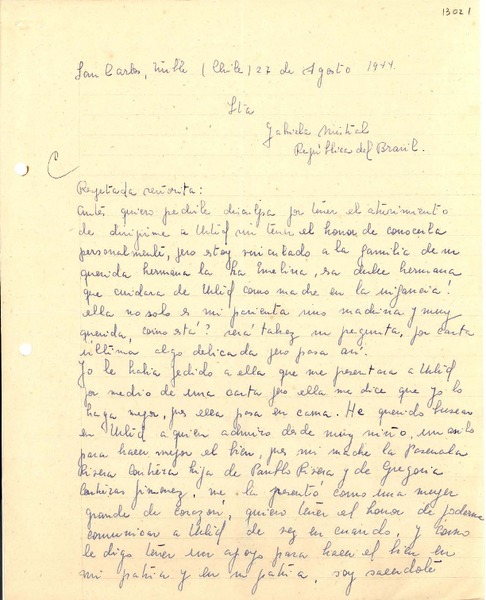 13021
San Carlos, Ñuble (Chile) 27 de Agosto 1944.
Sta
Gabriela Mistral
República del Brasil.
Respetada señorita:
Antes quiero pedirle disculpa por tener el atrevimiento
de dirigirme a Ustéd sin tener el honor de conocerla
personalmente, pero estoy vinculado a la familia de su
querida hermana la Emelina, su dulce hermana
que cuidara de Ustéd como madre en la infancia!
ella no solo es mi parienta sino madrina y muy
querida, como está? será talvez su pregunta, por carta
última algo delicada pero pasa así.
Yo le había pedido a ella que me presentara a Ustéd
por medio de una carta pero ella me dice que yo lo
haga mejor, pues ella pasa en cama. He querido buscar
en Ustéd a quien admiro desde muy niño, un asilo
para hacer mejor el bien, pues mi madre la Pascuala
Rivera Contreras hija de Pablo Rivera y de Gregoria
Contreras Jimenez, me la presentó como una mujer
grande de corazón, quiero tener el honor de poderme
comunicar a Ustéd de vez en cuando, y como
le digo tener un apoyo para hacer el bien en
mi patria y en mi patria, soy sacerdote